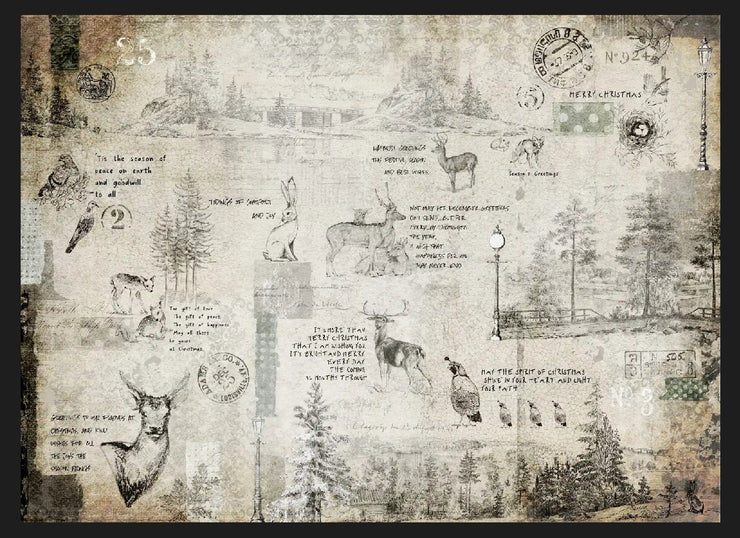 25
No 924
MERRY CHRISTMAS
WARMEST GREETINGS
THIS FESTIVE SEASON
AND BEST WISHES
Season's Greetings
'Tis the season of
peace on earth
and goodwill
to all
2
TIDINGS OF COMFORT
AND JOY
NOT MAY YET DECEMBER GREETERS
CAN SEND
THE YEAR,
I WISH THAT
HAPPINESS FOR YOU
MAY NEVER END
The gift of love.
The gift of peace.
The gift of happiness.
May all these
be yours
at Christmas.
IT'S MORE THAN
MERRY CHRISTMAS
THAT I AM WISHING YOU
IT'S BRIGHT AND MERRY
EVERY DAY
THE COMING
12 MONTHS THROUGH
MAY THE SPIRIT OF CHRISTMAS
SHINE IN YOUR HEART AND LIGHT
YOUR PATH
No 525
No 3
ADAMS & CO.
LOUISVILLE
GREETINGS TO OUR READERS AT
CHRISTMAS, AND KIND
WISHES FOR ALL
THE JOYS THE
SEASON BRINGS